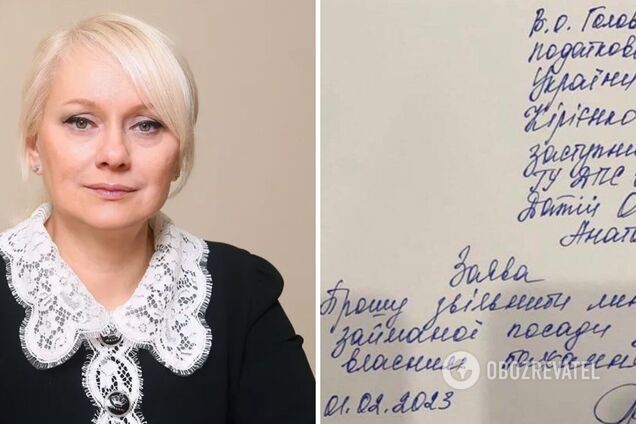 В.о. Голов
податково
України
Кірієнко
заступни
ГУ ДПС
Датій О
Анато
Заява
Прошу звільнити мене
займаної посади з
власним бажанн
01.02.2023
OBOZREVATEL